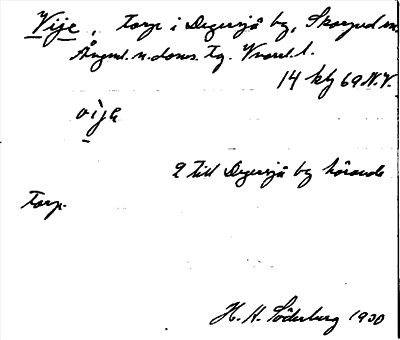 Vije, torp i Degersjö by, Skorped sn.
Ångml. n. doms. tg. Vnorrl. l.
14 kbl 69 N.V.
vija
2 till Degersjö by hörande
torp.
H. H. Söderberg 1930